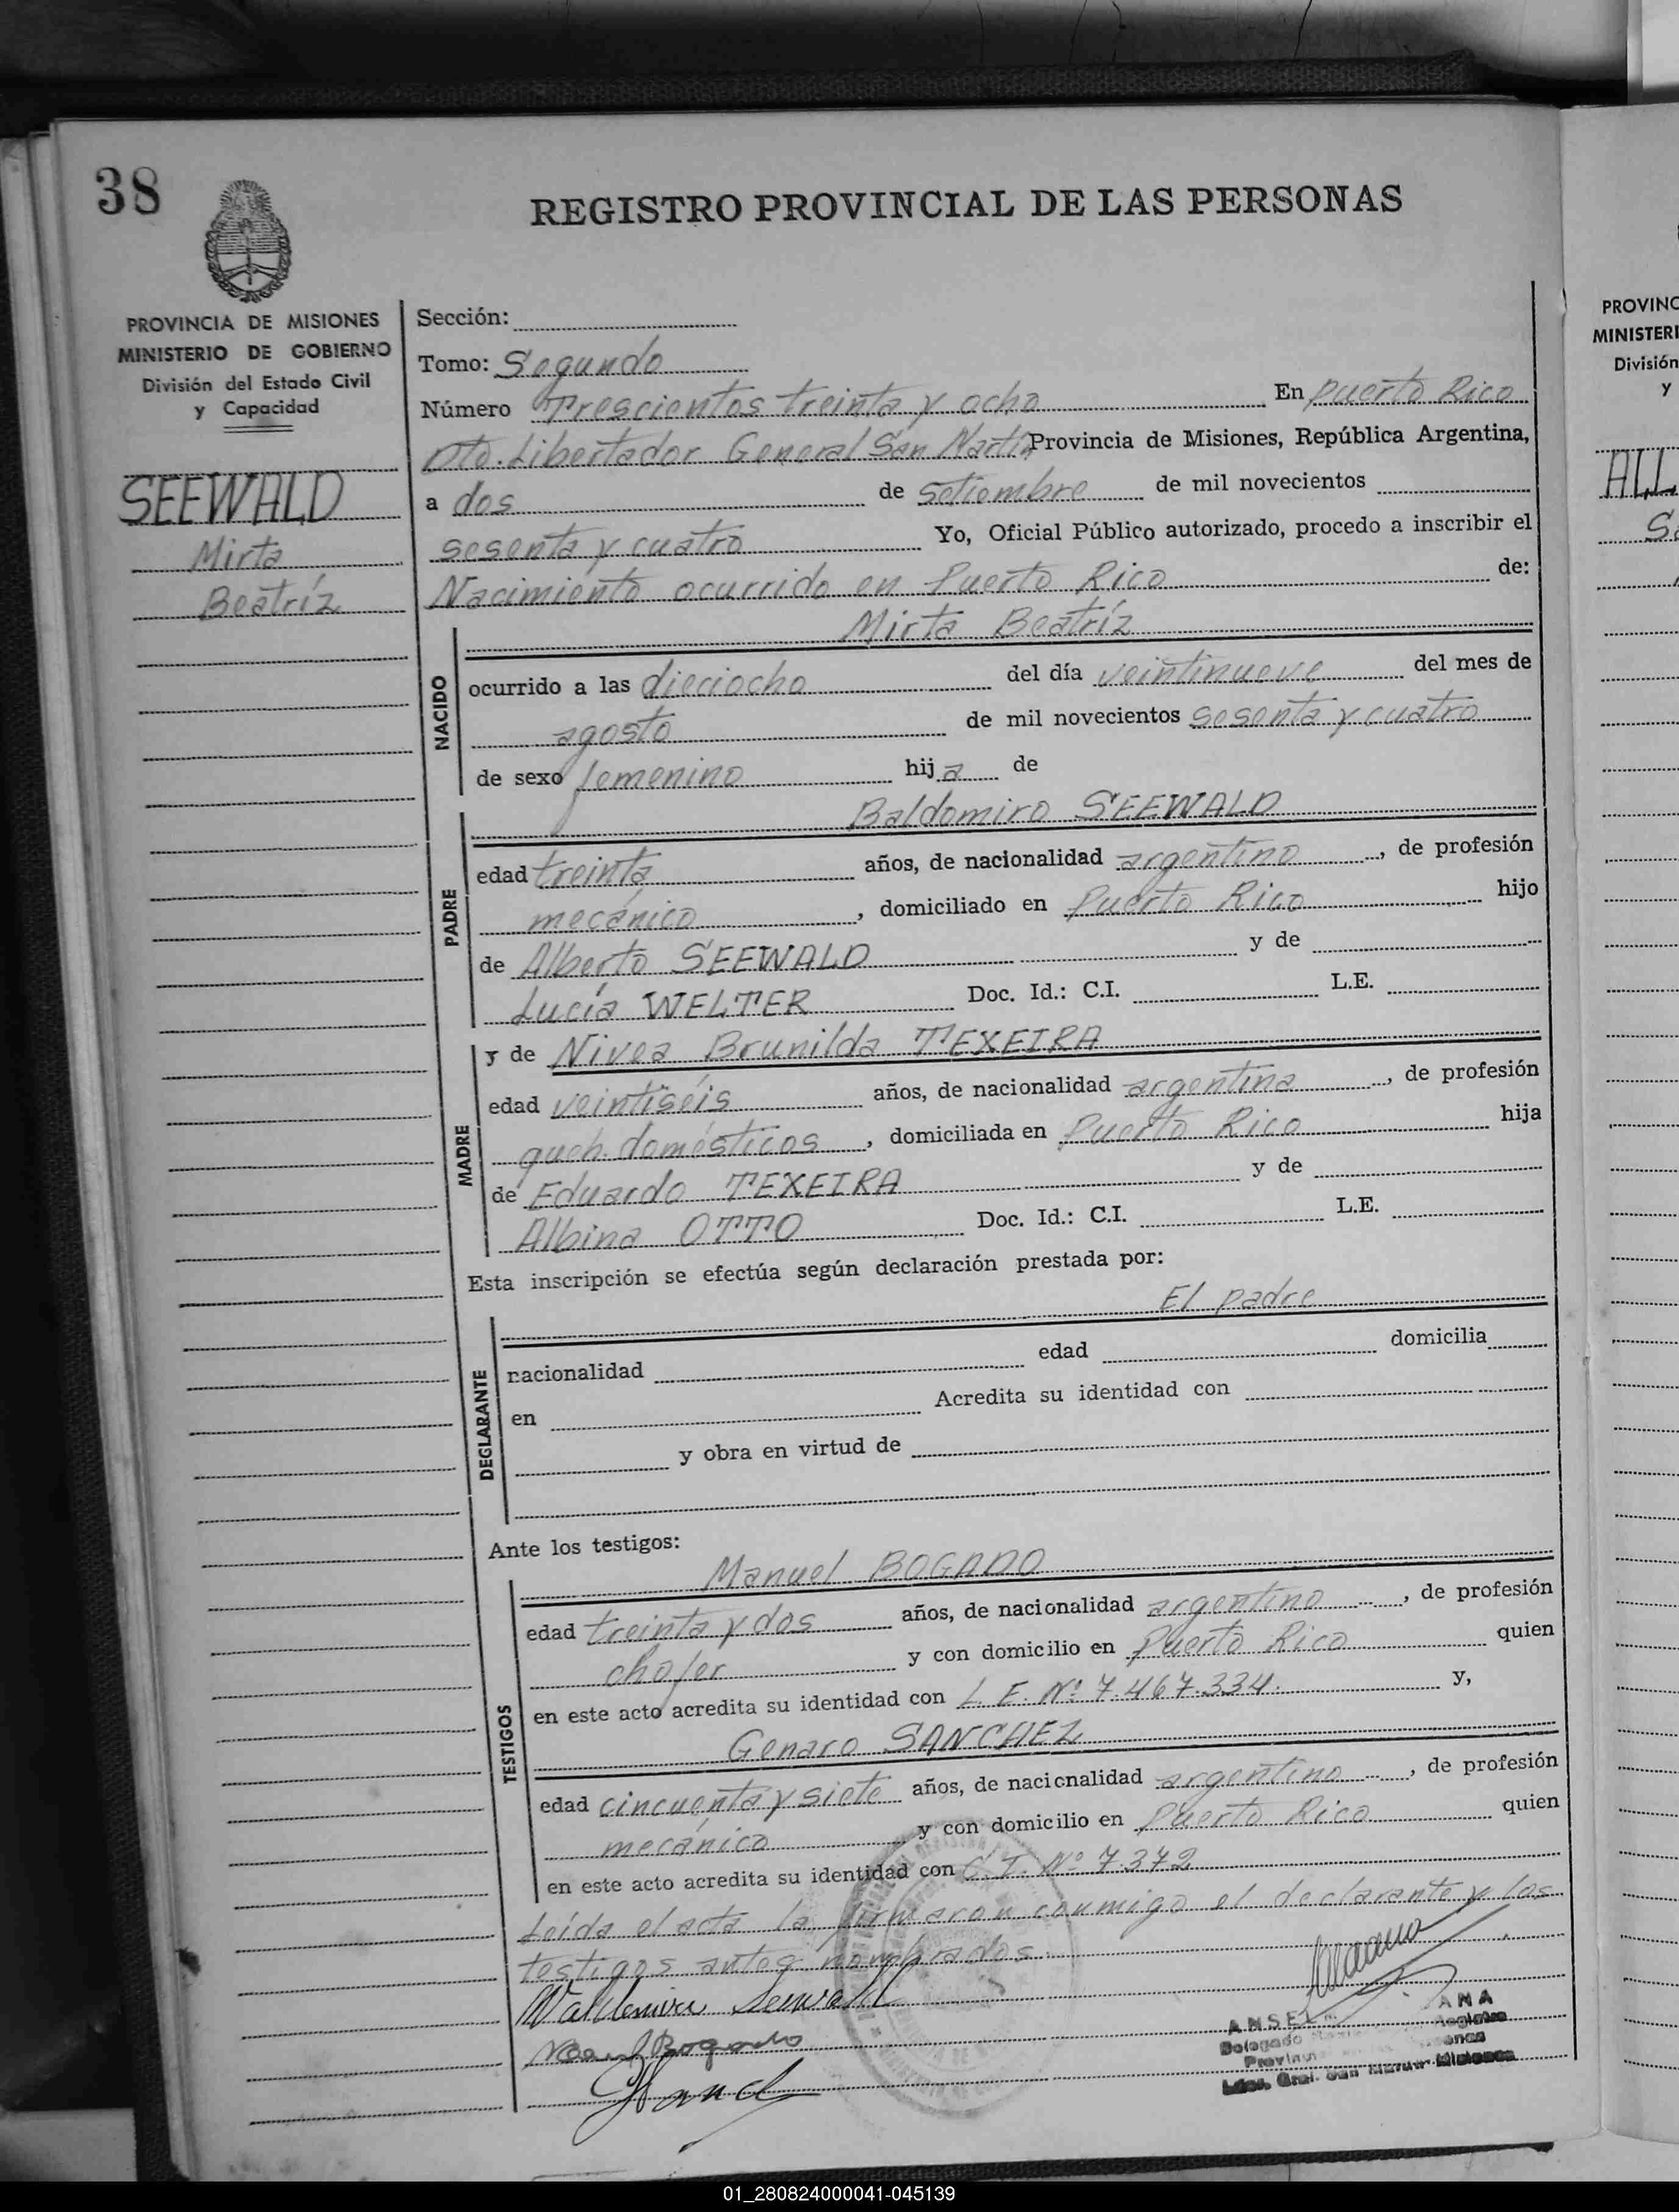 38
REGISTRO PROVINCIAL DE LAS PERSONAS
PROVINCIA DE MISIONES
MINISTERIO DE GOBIERNO
División del Estado Civil
y Capacidad
SEEWALD
Mirta
Beatríz
Sección:
Tomo: Segundo
Número Trescientos treinta y ocho En Puerto Rico
Dto. Libertador General San Martín Provincia de Misiones, República Argentina,
a dos de setiembre de mil novecientos
sesenta y cuatro Yo, Oficial Público autorizado, procedo a inscribir el
Nacimiento ocurrido en Puerto Rico de:
Mirta Beatríz
NACIDO
ocurrido a las dieciocho del día veintinueve del mes de
agosto de mil novecientos sesenta y cuatro
de sexo femenino hija de
Baldomiro SEEWALD
PADRE
edad treinta años, de nacionalidad argentino, de profesión
mecánico, domiciliado en Puerto Rico hijo
de Alberto SEEWALD y de
Lucía WELTER Doc. Id.: C.I. L.E.
y de Nivea Brunilda TEXEIRA
MADRE
edad veintiséis años, de nacionalidad argentina, de profesión
queh. domésticos, domiciliada en Puerto Rico hija
de Eduardo TEXEIRA y de
Albina OTTO Doc. Id.: C.I. L.E.
Esta inscripción se efectúa según declaración prestada por:
El padre
DECLARANTE
nacionalidad edad domicilia
en Acredita su identidad con
y obra en virtud de
Ante los testigos:
Manuel BOGADO
TESTIGOS
edad treinta y dos años, de nacionalidad argentino, de profesión
chofer y con domicilio en Puerto Rico quien
en este acto acredita su identidad con L. E. Nº 7.467.334. y,
Genaro SANCHEZ
edad cincuenta y siete años, de nacionalidad argentino, de profesión
mecánico y con domicilio en Puerto Rico quien
en este acto acredita su identidad con C. I. Nº 7.372
Leída el acta la firmaron conmigo el declarante y los
testigos antes nombrados.
Waldemiro Seewald
Bogado
Delegado
Ldor. Gral. San Martín Misiones
PROVINC
MINISTERI
División
y
ALL
01_280824000041-045139